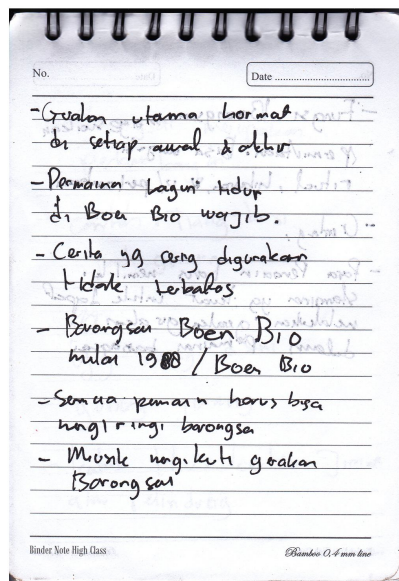 No.
Date
- Gualan utama hormat
di setiap awal & akhir
- Permaina bagun tidur
di Boen Bio wajib.
- Cerita yg cering digunakan
tidak terbatas
- Barongsan Boen Bio
mulai 1988 / Boen Bio
- Semua pemain harus bisa
mengiringi barongsa
- Musik mengikuti gerakan
Barongsai
Binder Note High Class
Bamboo 0.4 mm line